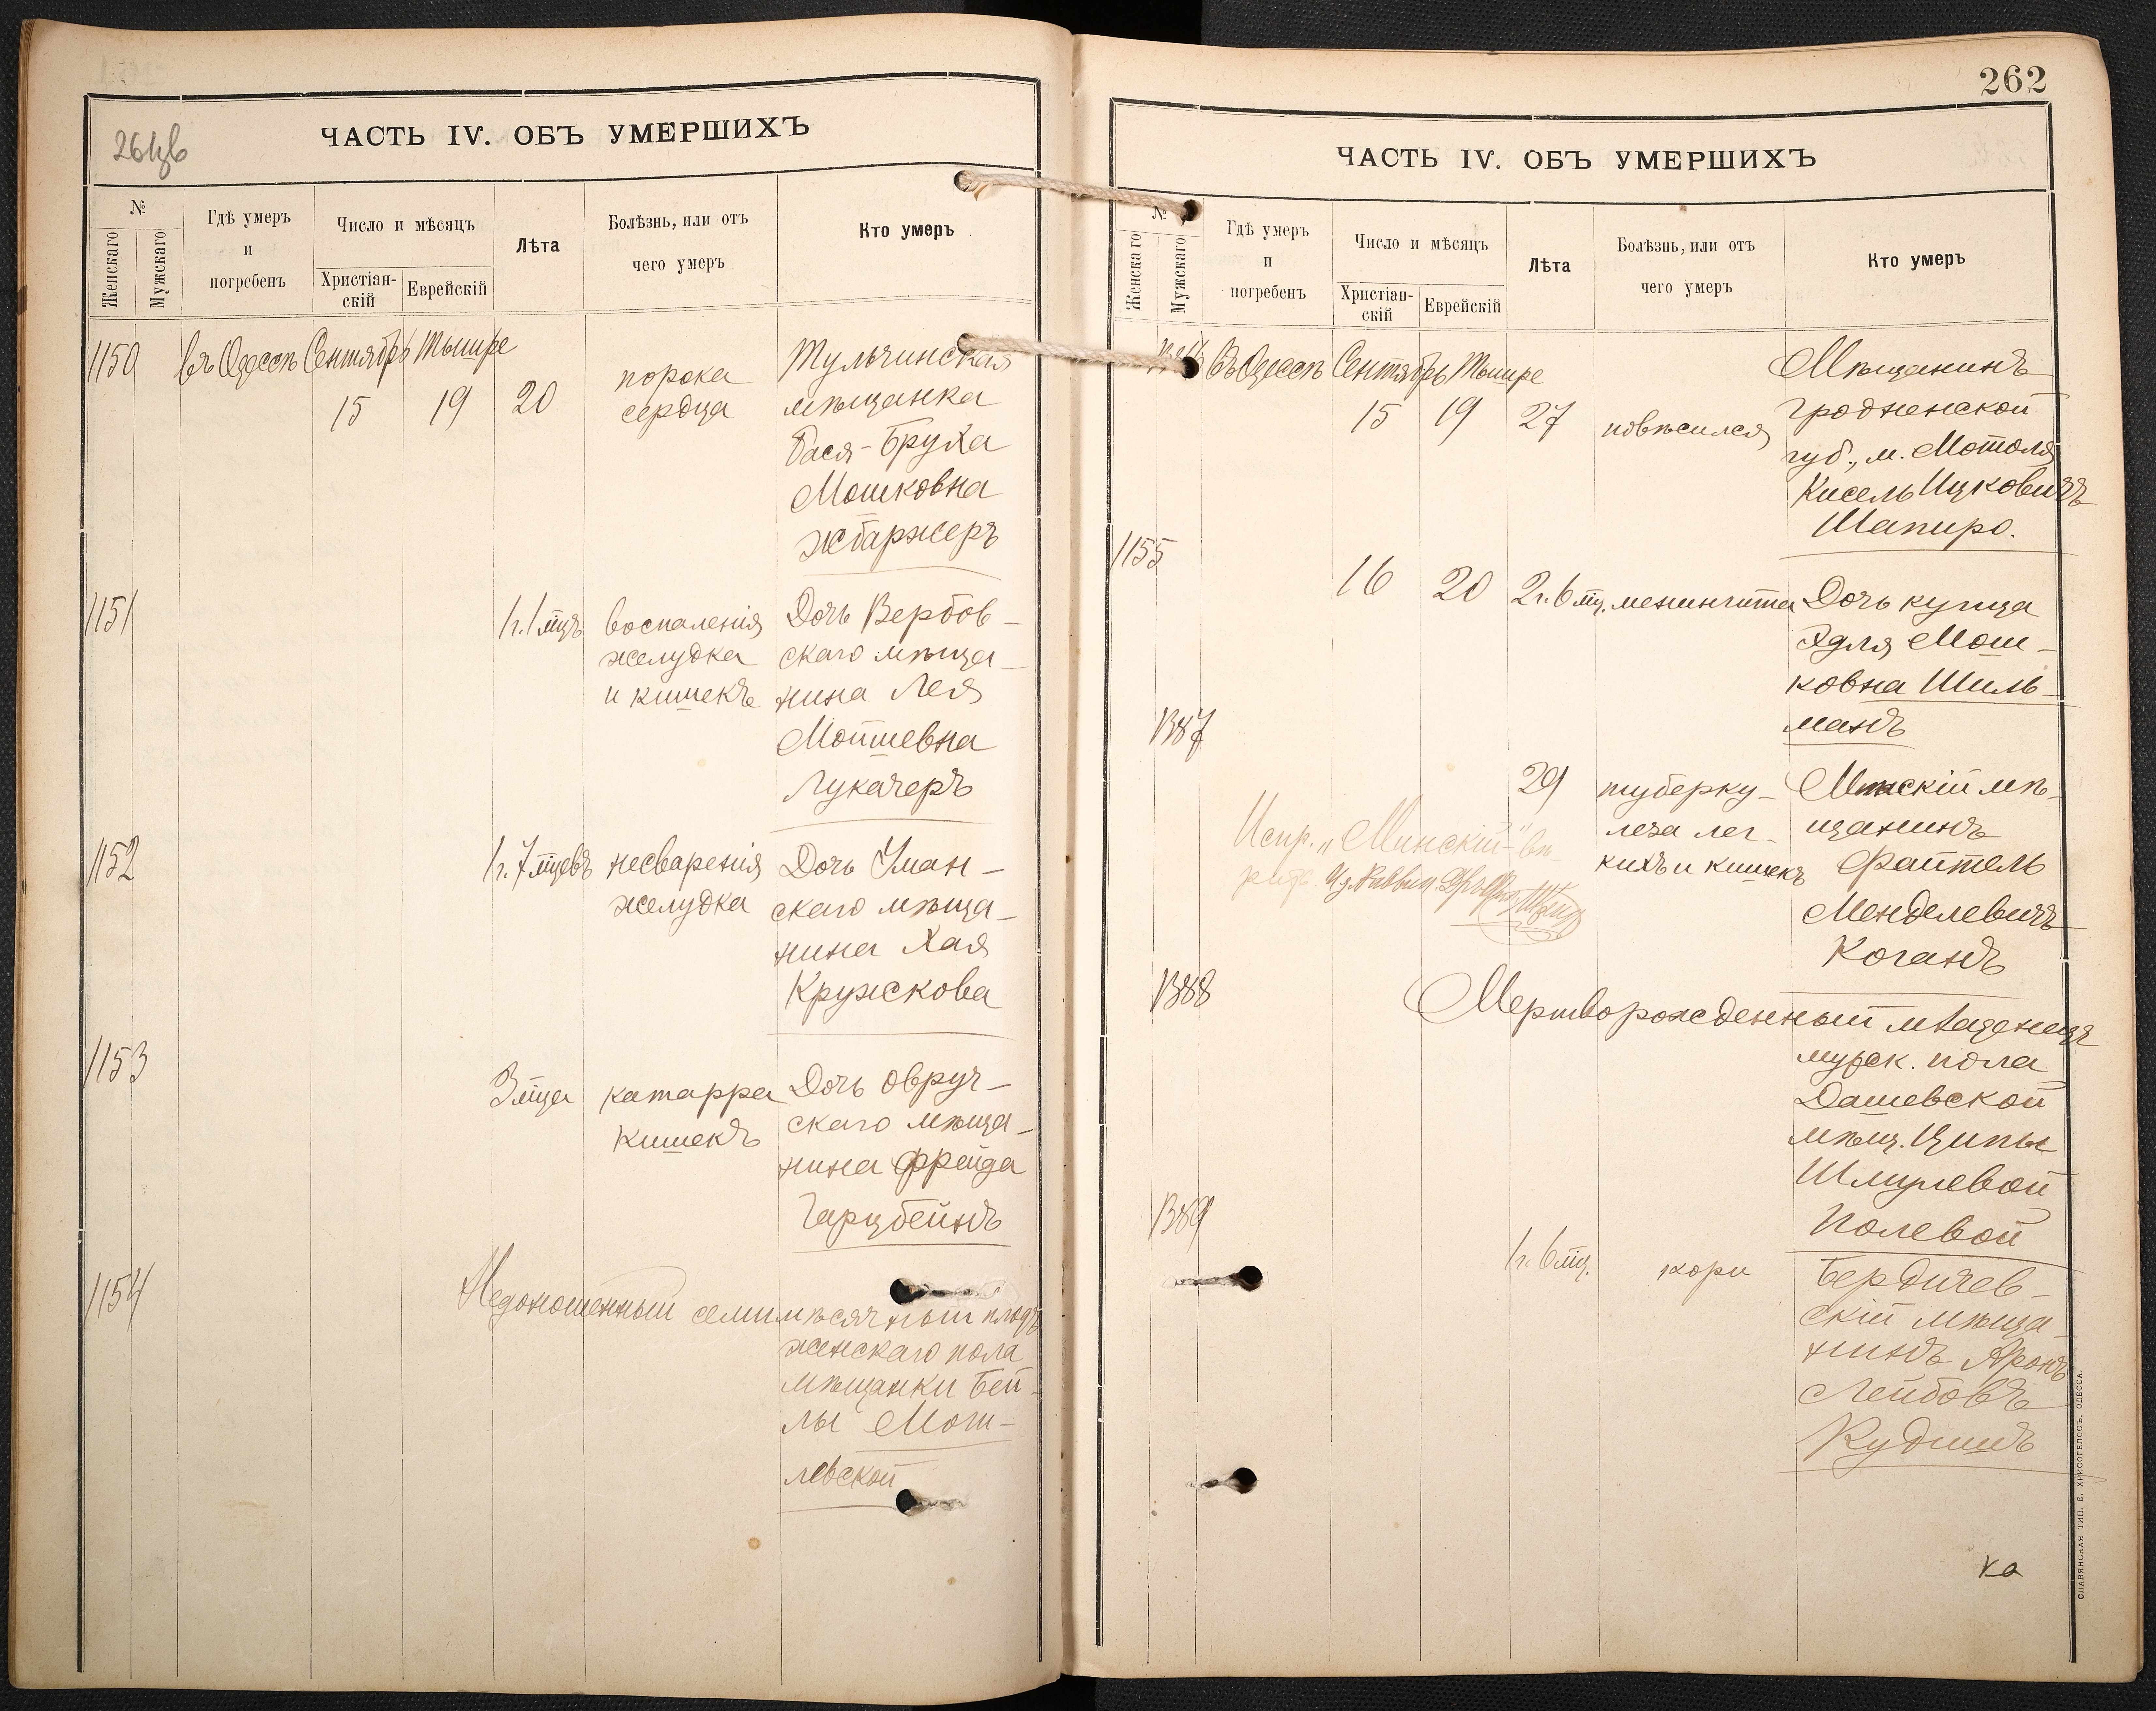 261об
ЧАСТЬ IV. ОБЪ УМЕРШИХЪ
№
Женскаго
Мужскаго
Гдѣ умеръ
и
погребенъ
Число и мѣсяцъ
Христіан-
скій
Еврейскій
Лѣта
Болѣзнь, или отъ
чего умеръ
Кто умеръ
1150 въ Одессѣ Сентябрь Тышре
15 19 20
порока
сердца
Тульчинская
мѣщанка
Бася-Бруха
Мошковна
Жбаржеръ
1151
1 г. 1 мцъ
воспаленія
желудка
и кишекъ
Дочь Вербов-
скаго мѣща-
нина Лея
Мойшевна
Лукачеръ
1152
1 г. 7 мцевъ
несваренія
желудка
Дочь Уман-
скаго мѣща-
нина Хая
Кружкова
1153
3 мца
катарра
кишекъ
Дочь Овруч-
скаго мѣща-
нина Фрейда
Гарцбейнъ
1154
Недоношенный семимѣсячный плодъ
женскаго пола
мѣщанки Бей-
лы Мош-
левской
262
ЧАСТЬ IV. ОБЪ УМЕРШИХЪ
№
Женскаго
Мужскаго
Гдѣ умеръ
и
погребенъ
Число и мѣсяцъ
Христіан-
скій
Еврейскій
Лѣта
Болѣзнь, или отъ
чего умеръ
Кто умеръ
Въ Одессѣ Сентябрь Тышре
15 19 27
повѣсился
Мѣщанинъ
Гродненской
губ., м. Мотоля
Кисель Ицковичъ
Шапиро.
1155
16 20 2 г. 6 мц. менингита
Дочь купца
Эдля Мош-
ковна Шиль-
манъ
1387
29
туберку-
леза лег-
кихъ и кишекъ
Минскій мѣ-
щанинъ
Файтель
Менделевичъ
Коганъ
Испр. „Минскій" вѣ-
1388
Мертворожденный младенецъ
мужск. пола
Дашевской
мѣщ. Ципы
Шмулевой
Полевой
1389
1 г. 6 мц.
кори
Бердичев-
скій мѣща-
нинъ Аронъ
Лейбовъ
Кудишъ
ка
СЛАВЯНСКАЯ ТИП. Е. ХРИСОГЕЛОСЪ, ОДЕССА.